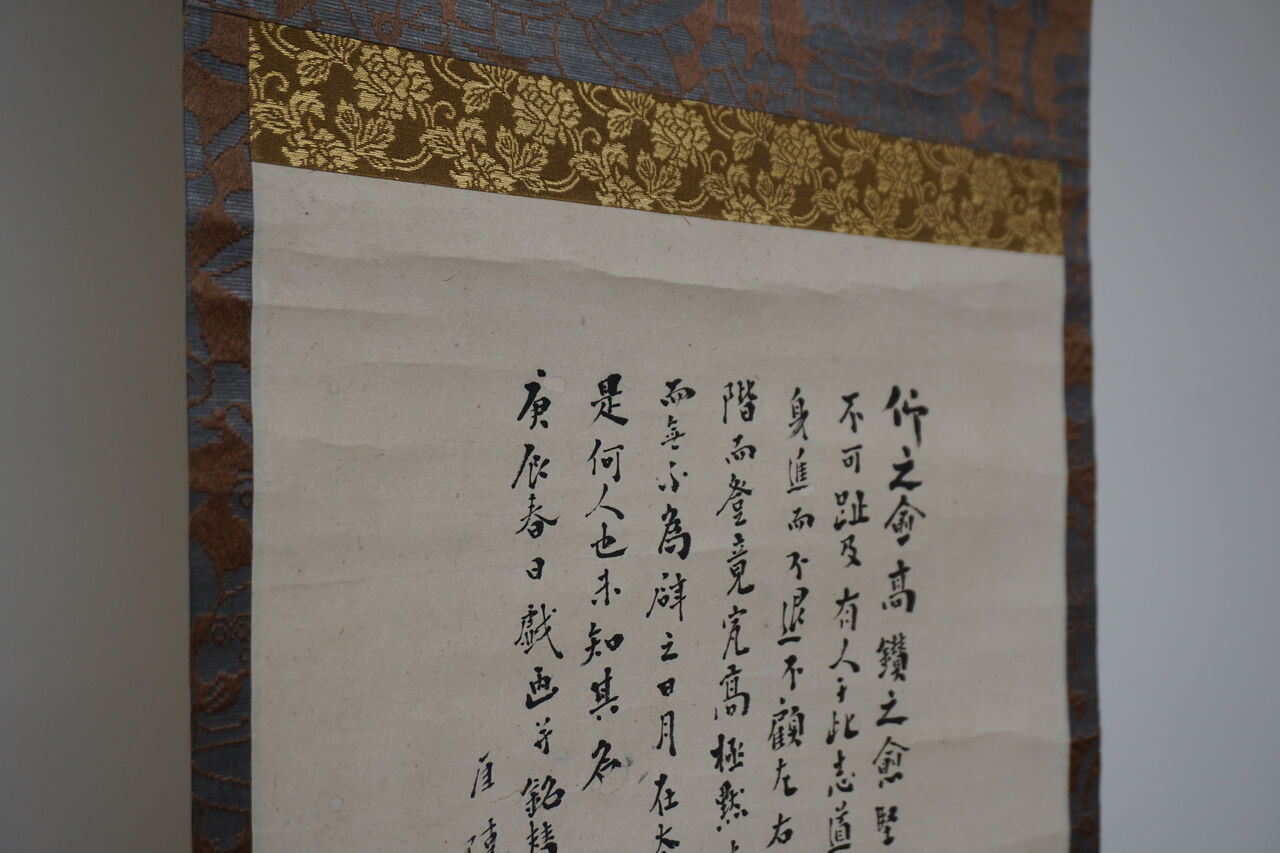 仰之愈高鑽之愈堅
不可趾及有人于此志道
身進而不退不顧左右
階而登竟窮高極
而無不為譬之日月在
是何人也未知其名
庚辰春日戲画并銘